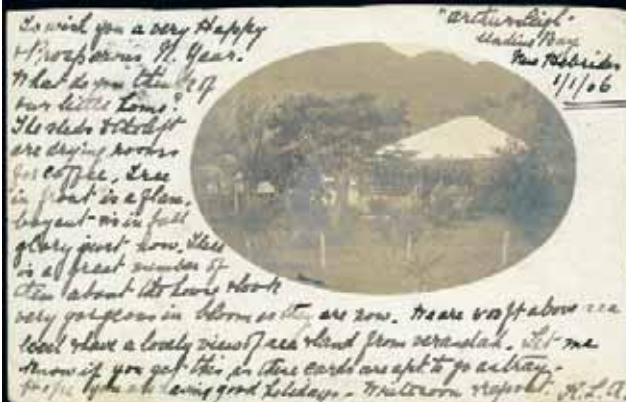 To wish you a very Happy
& Prosperous N. Year.
What do you think of
our little home?
The sheds to the left
are drying rooms
for coffee. Tree
in front is a flam-
boyant & is in full
glory just now. There
is a great number of
them about the house & look
very gorgeous in bloom as they are now. We are ft above sea
level & have a lovely view of sea & land from verandah. Let me
know if you get this as these cards are apt to go astray.
Hope you are having good holidays. Write soon & report. K.L.A.
"Arthurleigh"
Undine Bay
New Hebrides
1/1/06